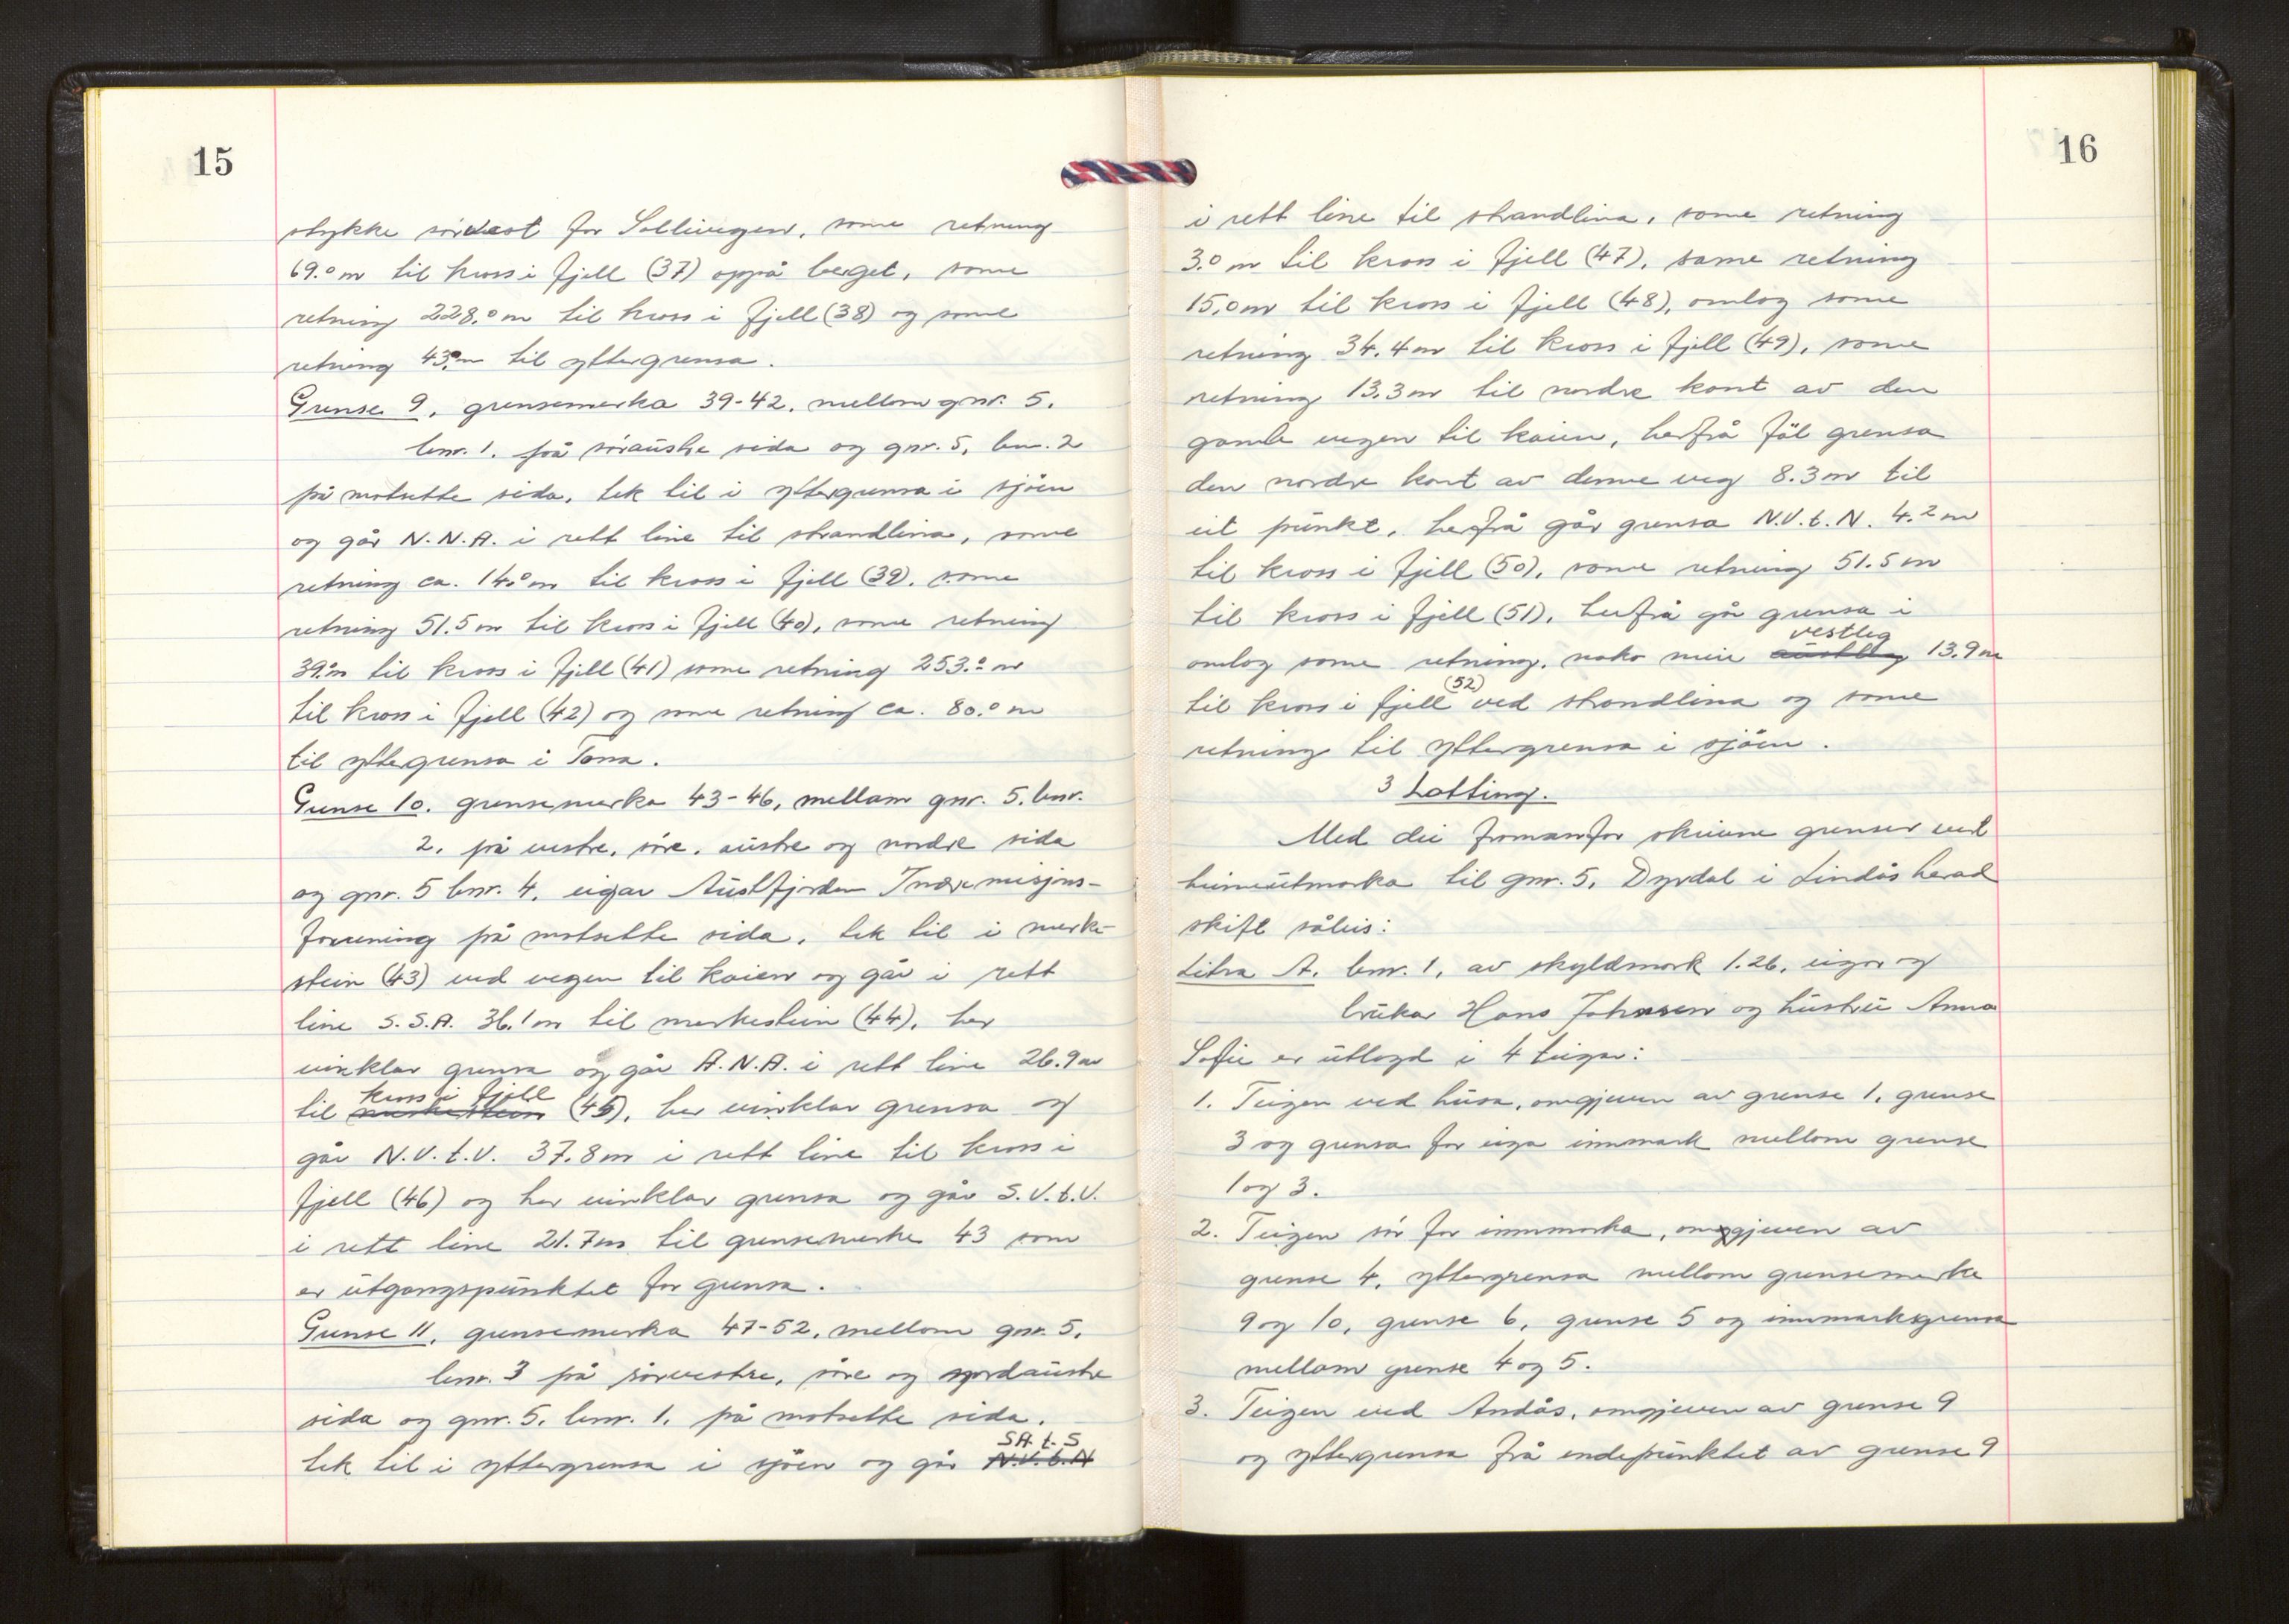 15
stykke sóraust for Sollivegen, same retning
69.0 m til kross i fjell (37) oppå berget, same
retning 228.0 m til kross i fjell (38) og same
retning 43.0 m til yttergrensa.
Grense 9, grensemerka 39-42, mellom gnr. 5.
bnr. 1. på sóraustre sida og gnr. 5, bnr. 2
på motsette sida, tek til i yttergrensa i sjöen
og går N.N.A. i rett line til strandlina, same
retning ca. 14.0 m til kross i fjell (39), same
retning 51.5 m til kross i fjell (40), same retning
39.0 m til kross i fjell (41) same retning 253.0 m
til kross i fjell (42) og same retning ca. 80.0 m
til yttergrensa i Tona.
Grense 10. grensemerka 43-46, mellam gnr. 5. bnr.
2. på vestre, sóre, austre og nordre sida
og gnr. 5 bnr. 4, eigar Austfjorden Indremisjons-
forening på motsette sida, tek til i merke-
stein (43) ved vegen til kaien og går i rett
line S.S.A. 36.1 m til merkestein (44), her
vinklar grensa og går A.N.A. i rett line 26.9 m
kross i fjell
til merkestein (45), her vinklar grensa og
går N.V.t.V. 37.8 m i rett line til kross i
fjell (46) og her vinklar grensa og går S.V.t.V.
i rett line 21.7 m til grensemerke 43 som
er utgangspunktet for grensa.
Grense 11, grensemerka 47-52, mellom gnr. 5.
bnr. 3 på sórvestre, sóre og nordaustre
sida og gnr. 5. bnr. 1. på motsette sida.
SA.t.S
tek til i yttergrensa i sjöen og går N.V.t.N
16
i rett line til strandlina, same retning
3.0 m til kross i fjell (47), same retning
15.0 m til kross i fjell (48), omlag same
retning 34.4 m til kross i fjell (49), same
retning 13.3 m til nordre kant av den
gamle vegen til kaien, herfrå föl grensa
den nordre kant av denne veg 8.3 m til
eit punkt, herfrå går grensa N.V.t.N. 4.2 m
til kross i fjell (50), same retning 51.5 m
til kross i fjell (51), herfrå går grensa i
vestleg
omlag same retning, noko meir austleg 13.9 m
(52)
til kross i fjell ved strandlina og same
retning til yttergrensa i sjöen.
3 Lotting.
Med dei framanfor skrivne grenser vert
heimeutmarka til gnr. 5, Dyrdal i Lindås herad
skift såleis:
Litra A. bnr. 1, av skyldmark 1.26, eigar og
brukar Hans Johnsen og hustru Anna
Sofie er utlagd i 4 teigar:
1. Teigen ved husa, omgjeven av grense 1, grense
3 og grensa for eiga innmark mellom grense
1 og 3.
2. Teigen sór for innmarka, omgjeven av
grense 4, yttergrensa mellom grensemerke
9 og 10, grense 6, grense 5 og innmarksgrensa
mellam grense 4 og 5.
3. Teigen ved Andås, omgjeven av grense 9
og yttergrensa frå endepunktet av grense 9